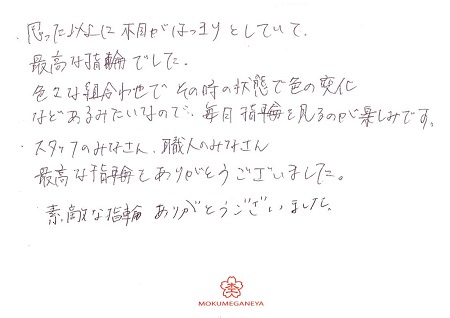 ・思った以上に木目がはっきりとしていて、
最高な指輪でした。
色々な組合わせで その時の状態で色の変化
などあるみたいなので、毎日 指輪を見るのが楽しみです。
・スタッフのみなさん、職人のみなさん
最高な指輪をありがとうございました。
素敵な指輪 ありがとうございました。
MOKUMEGANEYA